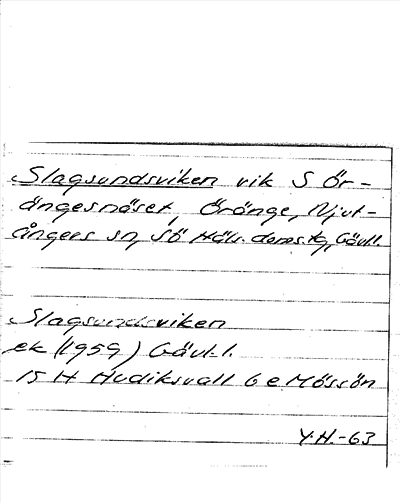 Slagsundsviken vik S Ör-
ängesnäset, Öränge, Njut-
ångers sn, Sö Häls. doms.tg, Gävl.l.
Slagsundsviken
ek (1959) Gävl.l.
15 H Hudiksvall 6 e Mössön
Y.H.-63